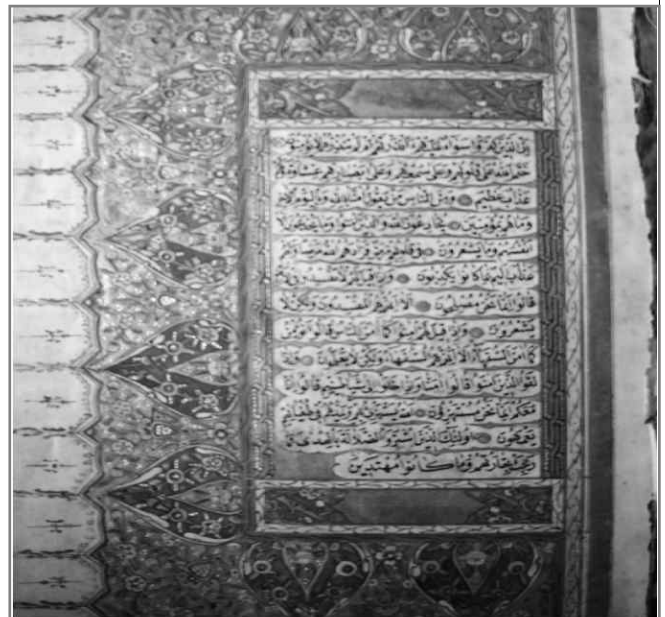 إن الذين كفروا سواء عليهم ءأنذرتهم أم لم تنذرهم لا يؤمنون
ختم الله على قلوبهم وعلى سمعهم وعلى أبصارهم غشاوة ولهم
عذاب عظيم ومن الناس من يقول آمنا بالله وباليوم الآخر
وما هم بمؤمنين يخادعون الله والذين آمنوا وما يخدعون إلا
أنفسهم وما يشعرون في قلوبهم مرض فزادهم الله مرضا ولهم
عذاب أليم بما كانوا يكذبون وإذا قيل لهم لا تفسدوا في الأرض
قالوا إنما نحن مصلحون ألا إنهم هم المفسدون ولكن لا
يشعرون وإذا قيل لهم آمنوا كما آمن الناس قالوا أنؤمن
كما آمن السفهاء ألا إنهم هم السفهاء ولكن لا يعلمون وإذا
لقوا الذين آمنوا قالوا آمنا وإذا خلوا إلى شياطينهم قالوا إنا
معكم إنما نحن مستهزؤن الله يستهزئ بهم ويمدهم في طغيانهم
يعمهون أولئك الذين اشتروا الضلالة بالهدى فما
ربحت تجارتهم وما كانوا مهتدين